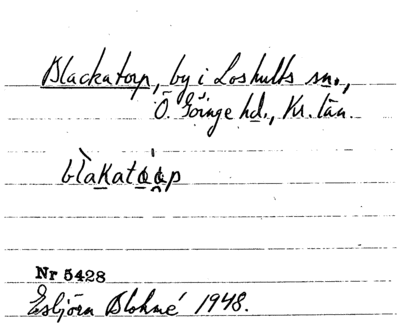 Blackatorp, by i Loshults sn.,
Ö. Göinge hd., Kr. län.
blàkatǫ̀ǫp
Nr 5428
Esbjörn Blohmé 1948.